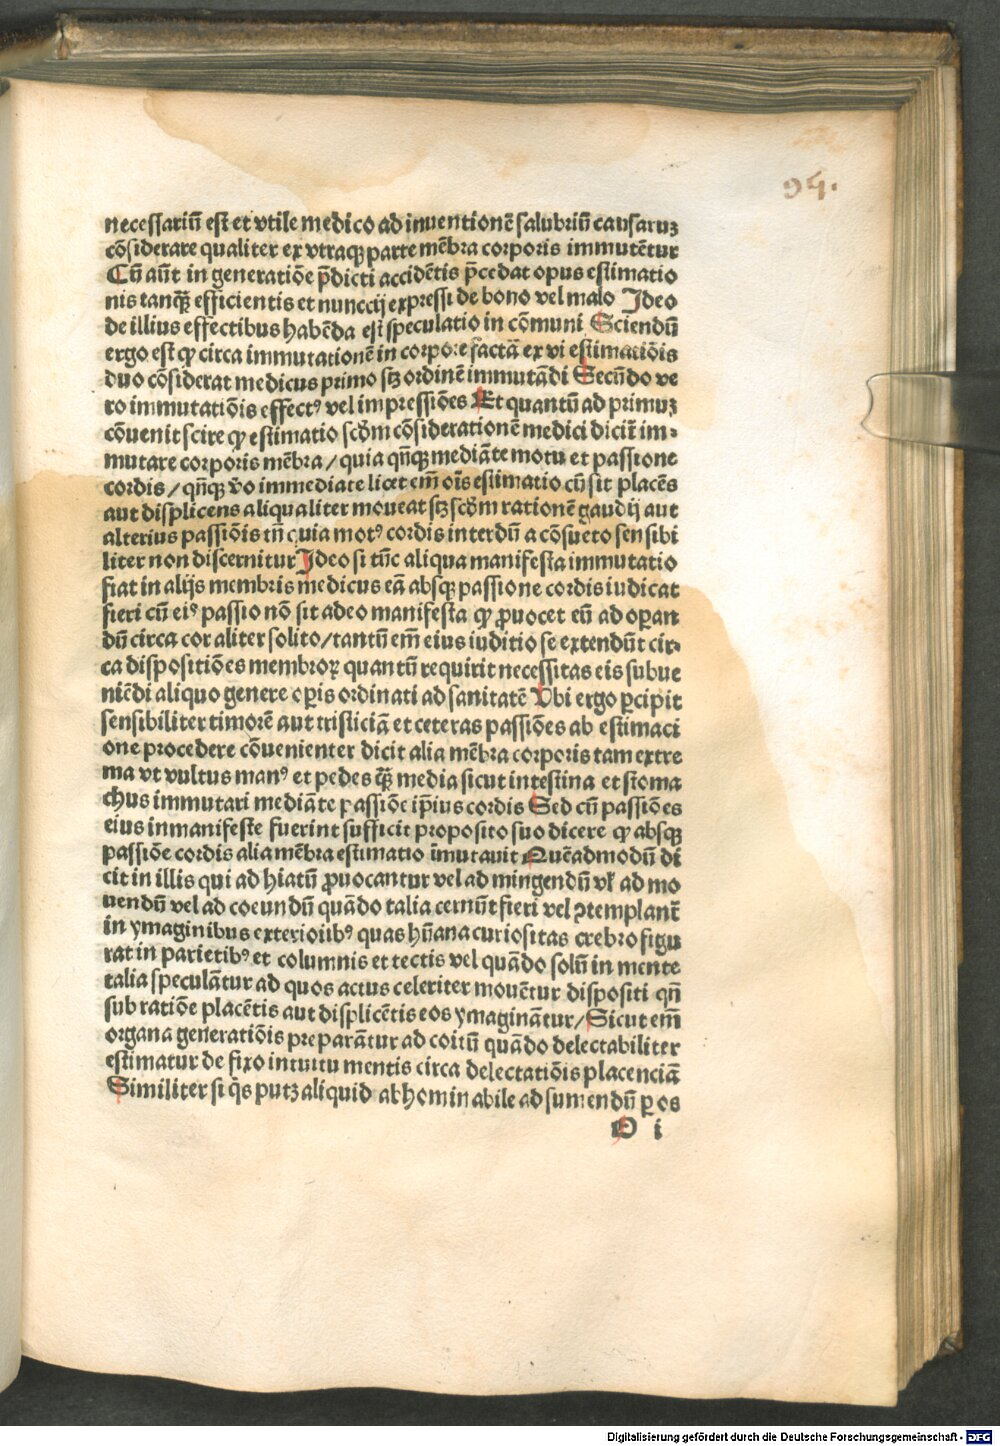 94.
necessariū est et vtile medico ad inuentionē salubriū causaruꝫ
cōsiderare qualiter ex vtraqꝫ parte mēbra corporis immutētur
Cū aūt in generatiōe p̄dicti accidētis p̄cedat opus estimatio
nis tanqꝫ̄ efficientis et nunccij expressi de bono vel malo Ideo
de illius effectibus habēda est speculatio in cōmuni Sciendū
ergo est ꝙ circa immutationē in corpore factā ex vi estimatiōis
duo cōsiderat medicus primo sꝫ ordinē immutādi Secūdo ve
ro immutatiōis effectꝰ vel impressiōes Et quantū ad primuꝫ
cōuenit scire ꝙ estimatio scd̄m cōsiderationē medici dicit̄ im⸗
mutare corporis mēbra / quia qn̄qꝫ mediāte motu et passione
cordis / qn̄qꝫ v̄o immediate licet em̄ oīs estimatio cū sit placēs
aut displicens aliqualiter moueat sꝫ scd̄m rationē gaudij aut
alterius passiōis tn̄ quia motꝰ cordis interdū a cōsueto sensibi
liter non discernitur Ideo si tūc aliqua manifesta immutatio
fiat in alijs membris medicus eā absqꝫ passione cordis iudicat
fieri cū eiꝰ passio nō sit adeo manifesta ꝙ ꝓuocet eū ad oꝑan
dū circa cor aliter solito / tantū em̄ eius iuditio se extendūt cir⸗
ca dispositiōes membroꝝ quantū requirit necessitas eis subue
niēdi aliquo genere oꝑis ordinati ad sanitatē Vbi ergo ꝑcipit
sensibiliter timorē aut tristiciā et ceteras passiōes ab estimaci
one procedere cōuenienter dicit alia mēbra corporis tam extre
ma vt vultus manꝰ et pedes qꝫ̄ media sicut intestina et stoma
chus immutari mediāte passiōe ip̄ius cordis Sed cū passiōes
eius inmanifeste fuerint sufficit proposito suo dicere ꝙ absqꝫ
passiōe cordis alia mēbra estimatio īmutauit Quēadmodū di
cit in illis qui ad hiatū ꝓuocantur vel ad mingendū vl̄ ad mo
uendū vel ad coeundū quādo talia cernūt fieri vel ↄtemplant̄
in ymaginibus exterioribꝰ quas hūana curiositas crebro figu
rat in parietibꝰ et columnis et tectis vel quādo solū in mente
talia speculātur ad quos actus celeriter mouētur dispositi qn̄
sub ratiōe placētis aut displicētis eos ymaginātur / Sicut em̄
organa generatiōis preparātur ad coitū quādo delectabiliter
estimatur de fixo intuitu mentis circa delectatiōis placenciā
Similiter si q̄s putꝫ aliquid abhominabile ad sumendū ꝑ os
O i
Digitalisierung gefördert durch die Deutsche Forschungsgemeinschaft - DFG